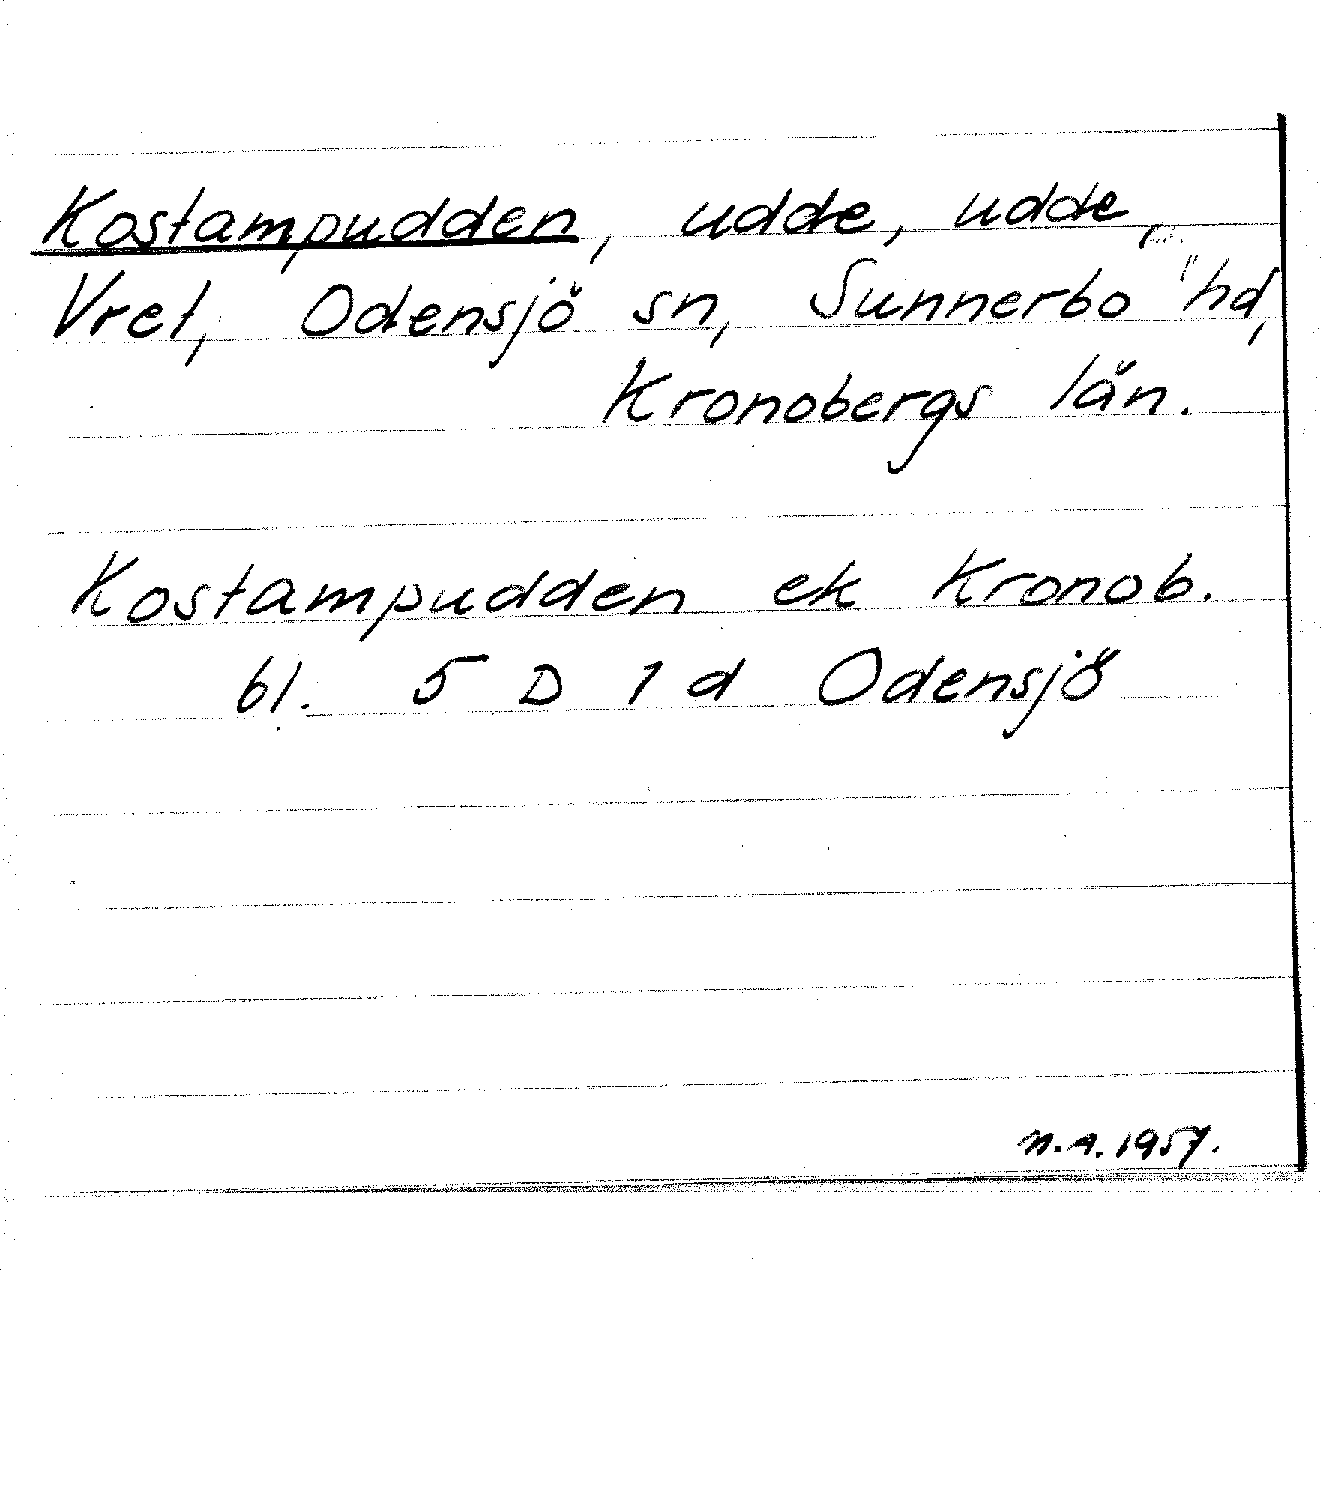 Kostampudden, udde, udde,
Vret, Odensjö sn, Sunnerbo hd,
Kronobergs län.
Kostampudden ek Kronob.
bl. 5 D 1 d Odensjö
N.A. 1957.